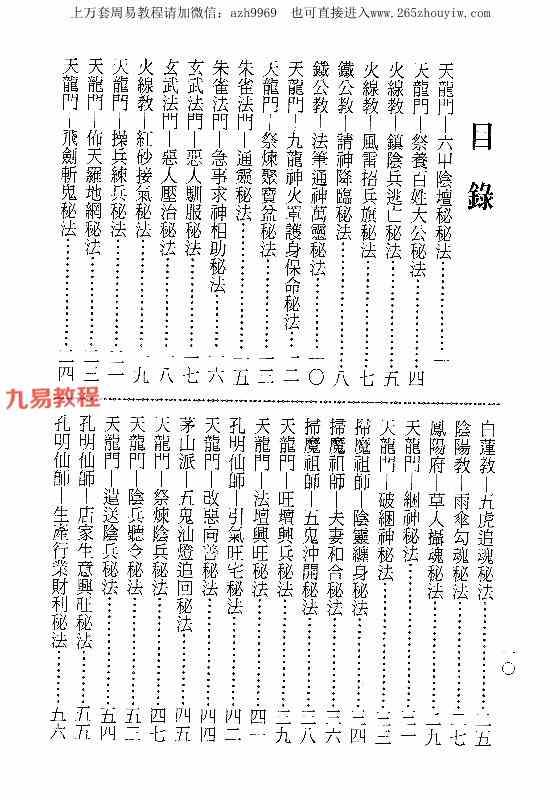 上万套周易教程请加微信：azh9969 也可直接进入www.265zhouyiw.com
目錄
天龍門—六甲陰壇秘秘法…………一
天龍門—祭養百姓大公秘法…………四
火線教—鎮陰兵逃亡秘法…………五
火線教—風雷招兵旗秘法…………七
鐵公教—請神降臨秘法…………八
鐵公教—法筆通神萬靈秘法…………一〇
天龍門—九龍神火罩護身保命秘法…………一二
天龍門—祭煉聚寶盆秘法…………一三
朱雀法門—通靈秘法…………一五
朱雀法門—急事求神相助秘法…………一六
玄武法門—惡人馴服秘法…………一七
玄武法門—惡人壓治秘法…………一八
火線教—紅砂接氣秘法…………一九
天龍門—操兵練兵秘法…………二一
天龍門—佈天羅地網秘法…………二三
天龍門—飛劍斬鬼秘法…………二四
九易教程
白蓮教—五虎追魂秘法…………二五
陰陽教—雨傘勾魂秘法…………二七
鳳陽府—草人攝魂秘法…………二九
天龍門—綑神秘法…………三一
天龍門—破綑神秘法…………三三
掃魔祖師—陰靈纏身秘法…………三四
掃魔祖師—夫妻和合秘法…………三六
掃魔祖師—五鬼沖開秘法…………三八
天龍門—旺壇興兵秘法…………三九
天龍門—法壇興旺秘法…………四一
孔明仙師—引氣旺宅秘法…………四二
天龍門—改惡向善秘法…………四四
茅山派—五鬼油燈追回秘法…………四五
天龍門—祭煉陰兵秘法…………四七
天龍門—陰兵聽令秘法…………五二
天龍門—遣送陰兵秘法…………五四
孔明仙師—店家生意興旺秘法…………五五
孔明仙師—生產行業財利秘法…………五六
一〇